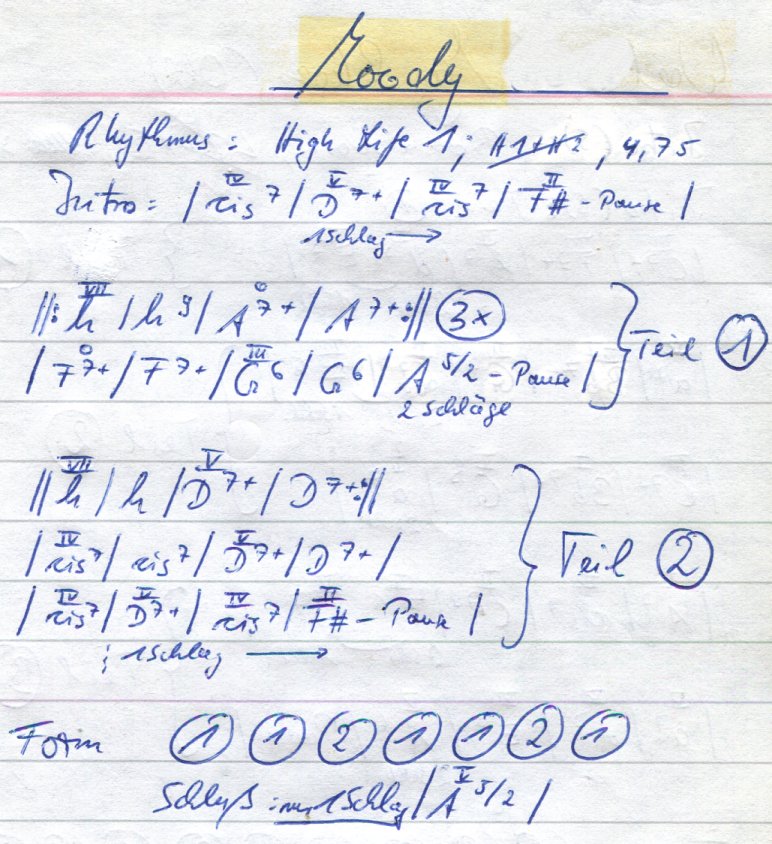 Moody
Rhythmus: High Life 1; A1+A2, 4,75
Intro: | IV cis 7 | V D 7+ | IV cis 7 | II F# - Pause |
1Schlag →
||: VII h | h 9 | 0 A 7+ | A 7+ :|| 3x
| 0 F 7+ | F 7+ | III G 6 | G 6 | A 5/2 - Pause | Teil 1
2 Schläge
|| VII h | h | V D 7+ | D 7+ :||
| IV cis 7 | cis 7 | V D 7+ | D 7+ | Teil 2
| IV cis 7 | V D 7+ | IV cis 7 | II F# - Pause |
1Schlag →
Form 1 1 2 1 1 2 1
Schluß: nur 1Schlag | V A 5/2 |